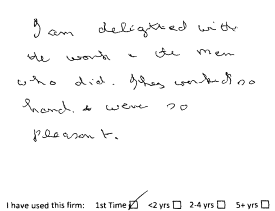 I am delighted with
the work & the men
who did. They worked so
hard. & were so
pleasant.
I have used this firm: 1st Time ☑ <2 yrs ☐ 2-4 yrs ☐ 5+ yrs ☐